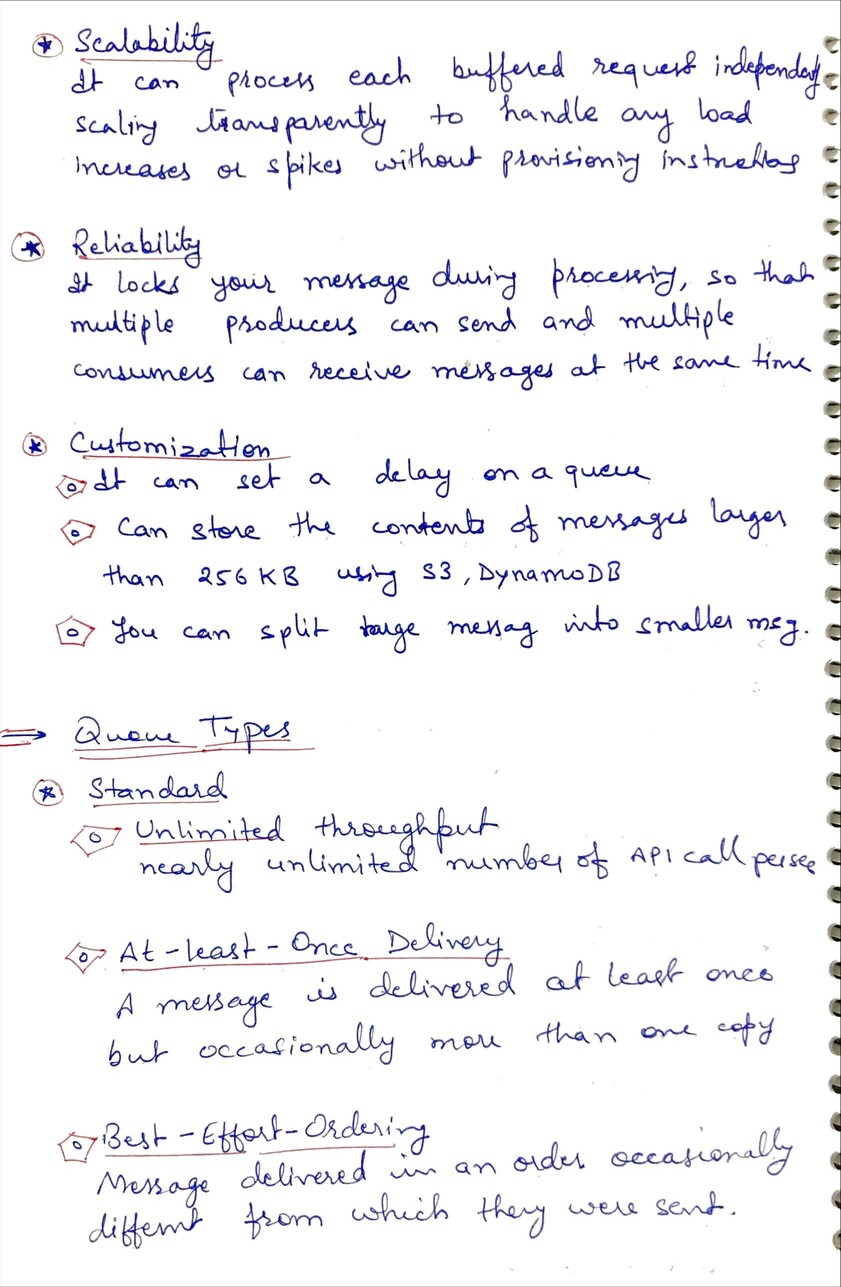 Scalability
It can process each buffered request independently
scaling transparently to handle any load
increases or spikes without provisioning instructions
Reliability
It locks your message during processing, so that
multiple producers can send and multiple
consumers can receive messages at the same time
Customization
It can set a delay on a queue
Can store the contents of messages larger
than 256 KB using S3, DynamoDB
You can split large messag into smaller msg.
Queue Types
Standard
Unlimited throughput
nearly unlimited number of API call persec
At-least-Once Delivery
A message is delivered at least once
but occasionally more than one copy
Best-Effort-Ordering
Message delivered in an order occasionally
different from which they were sent.